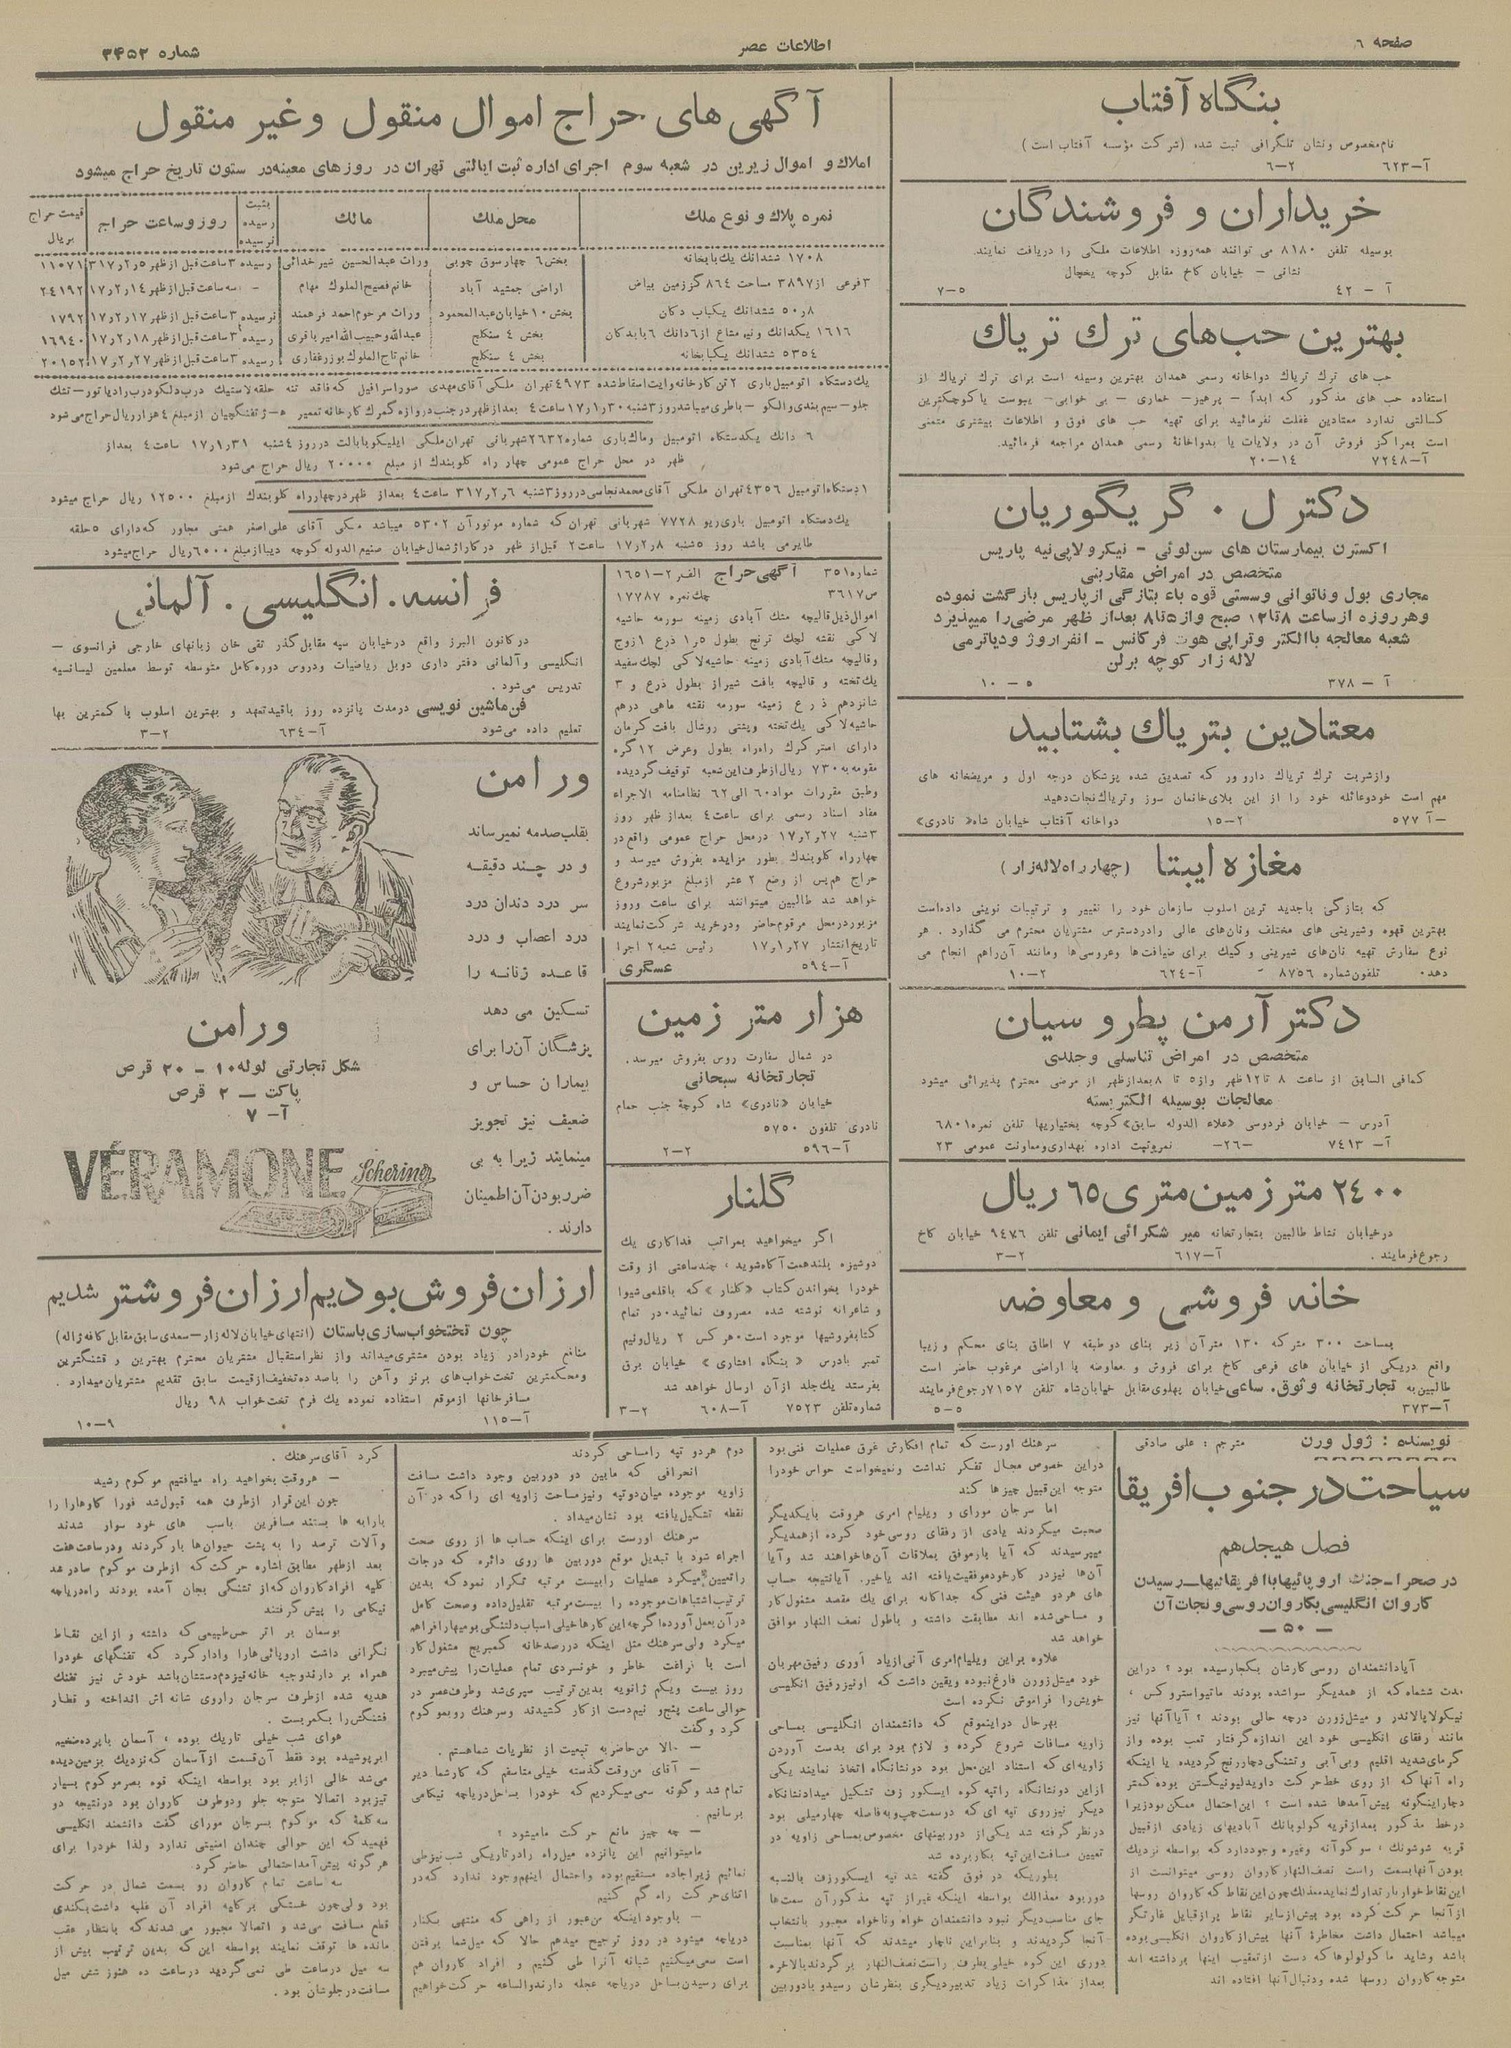 صفحه ٦
اطلاعات عصر
شماره ۳۴۵۲
بنگاه آفتاب
نام مخصوص و نشان تلگرافی ثبت شده (شرکت مؤسسه آفتاب است)
آ-٦٢٣ ٢-٦
خریداران و فروشندگان
بوسیله تلفن ٨١٨٠ می توانند همه روزه اطلاعات ملکی را دریافت نمایند.
نشانی - خیابان کاخ مقابل کوچه یخچال
آ - ٤٢ ٥-٧
بهترین حب‌های ترك تریاك
حب های ترك تریاك دواخانه رسمی همدان بهترین وسیله است برای ترك تریاك از
استفاده حب های مذکور که ابداً - پرهیز - خماری - بی خوابی- یبوست یا کوچکترین
کسالتی ندارد معتادین غفلت نفرمائید برای تهیه حب های فوق و اطلاعات بیشتری متمنی
است بمراکز فروش آن در ولایات یا بدواخانهٔ رسمی همدان مراجعه فرمائید.
آ-٧٢٤٨ ١٤-٢٠
دکتر ل . گریگوریان
اکسترن بیمارستان های سن لوئی - نیکرولاپی‌تیه پاریس
متخصص در امراض مقاربتی
مجاری بول و ناتوانی و سستی قوه باء بتازگی از پاریس بازگشت نموده
و هر روزه از ساعت ٨ تا ١٢ صبح و از ٥ تا ٨ بعد از ظهر مرضی را میپذیرد
شعبه معالجه با الکتر و تراپی هوت فرکانس - انفراروژ و دیاترمی
لاله زار کوچه برلن
آ - ٣٧٨ ٥ - ١٠
معتادین بتریاك بشتابید
و از شربت ترك تریاك دارو ور که تصدیق شده پزشکان درجه اول و مریضخانه های
مهم است خود و عائله خود را از این بلای خانمان سوز و تریاك نجات دهید
آ-٥٧٧ ٢-١٥ دواخانه آفتاب خیابان شاه «نادری»
مغازه ایبتا (چهار راه لاله زار)
که بتازگی باجدید ترین اسلوب سازمان خود را تغییر و ترتیبات نوینی داده است
بهترین قهوه و شیرینی های مختلف و نان‌های عالی را در دسترس مشتریان محترم می گذارد . هر
نوع سفارش تهیه نان‌های شیرینی و کیك برای ضیافت‌ها و عروسی‌ها و مانند آن را هم انجام می
دهد. تلفون شماره ٨٧٥٦ آ-٦٢٤ ٢-١٠
دکتر آرمن پطروسیان
متخصص در امراض تناسلی و جلدی
کمافی السابق از ساعت ٨ تا ١٢ ظهر و از ٥ تا ٨ بعد از ظهر از مرضی محترم پذیرائی میشود
معالجات بوسیله الکتریسته
آدرس - خیابان فردوسی «علاء الدوله سابق» کوچه بختیاریها تلفن نمره ٦٨٠١
آ- ٧٤١٣ -٢٦- نمره ثبت اداره بهداری و معاونت عمومی ٢٣
٢٤٠٠ متر زمین متری ٦٥ ریال
در خیابان نشاط طالبین بتجارتخانه میر شکرائی ایمانی تلفن ٩٤٧٦ خیابان کاخ
رجوع فرمایند . آ-٦١٧ ٢-٣
خانه فروشی و معاوضه
بمساحت ٣٠٠ متر که ١٣٠ متر آن زیر بنای دو طبقه ٧ اطاق بنای محکم و زیبا
واقع در یکی از خیابان های فرعی کاخ برای فروش و معاوضه با اراضی مرغوب حاضر است
طالبین به تجارتخانه وثوق، ساعی خیابان پهلوی مقابل خیابان شاه تلفن ٧١٥٧ رجوع فرمایند
آ-٣٧٣ ٥-٥
آگهی های حراج اموال منقول و غیر منقول
املاك و اموال زیرین در شعبه سوم اجرای اداره ثبت ایالتی تهران در روزهای معینه در ستون تاریخ حراج میشود
نمره پلاك و نوع ملك محل ملك مالك بثبت رسیده نرسیده روز و ساعت حراج قیمت حراج بریال
١٧٠٨ ششدانك یك بابخانه بخش ٦ چهار سوق چوبی وراث عبدالحسین شیر خدائی رسیده ٣ ساعت قبل از ظهر ٣١٧٫٢٫٥ ١١٠٧١
٣ فرعی از ٣٨٩٧ مساحت ٨٦٤ گز زمین بیاض اراضی جمشید آباد خانم فصیح الملوك مهام - سه ساعت قبل از ظهر ١٧٫٢٫١٤ ٢٤١٩٢
٥٠٫٨ ششدانك یکباب دکان بخش ١٠ خیابان عبدالمحمود وراث مرحوم احمد فرهمند نرسیده ٣ ساعت قبل از ظهر ١٧٫٢٫١٧ ١٧٩٢
١٦١٦ یکدانك و نیم مشاع از ٦ دانك ٦ بابدکان بخش ٤ سنگلج عبدالله و حبیب الله امیر باقری رسیده ٣ ساعت قبل از ظهر ١٧٫٢٫١٨ ١٦٩٤٠
٥٣٥٤ ششدانك یکبابخانه بخش ٤ سنگلج خانم تاج الملوك بوزرغفاری رسیده ٣ ساعت قبل از ظهر ١٧٫٢٫٢٧ ٢٠١٥٢
یك دستگاه اتومبیل باری ٢ تن کارخانه وایت اسقاط شده ٤٩٧٣ تهران ملکی آقای مهدی صور اسرافیل که فاقد تنه حلقه لاستیك درب دلکو درب رادیاتور - تشك
جلو - سیم بندی والکو - باطری میباشد روز ٣ شنبه ١٧٫١٫٣٠ ساعت ٤ بعد از ظهر در جنب دروازه گمرك کارخانه تعمیر تفنگچیان از مبلغ ٤ هزار ریال حراج می شود
٦ دانك یکدستگاه اتومبیل وماك باری شماره ٢٦٣٢ شهربانی تهران ملکی ایلیکو بابالت در روز ٤ شنبه ١٧٫١٫٣١ ساعت ٤ بعد از
ظهر در محل حراج عمومی چهار راه کلوبندك از مبلغ ٢٠٠٠٠ ریال حراج می‌شود
١ دستگاه اتومبیل ٤٣٥٦ تهران ملکی آقای محمد نجاسی در روز ٣ شنبه ٣١٧٫٢٫٦ ساعت ٤ بعد از ظهر در چهار راه کلوبندك از مبلغ ١٢٥٠٠ ریال حراج میشود
یك دستگاه اتومبیل باری ریو ٧٧٢٨ شهربانی تهران که شماره موتور آن ٥٣٠٢ میباشد ملکی آقای علی اصغر همتی مجاور که دارای ٥ حلقه
طایر می باشد روز ٥ شنبه ١٧٫٢٫٨ ساعت ٢ قبل از ظهر در کاراژ شمال خیابان صنیع الدوله کوچه دیبا از مبلغ ٦٠٠٠ ریال حراج میشود
شماره ٣٥١ آگهی حراج الف ٢-١٦٥١
ص ٣٦١٧ چك نمره ١٧٧٨٧
اموال ذیل قالیچه مشك آبادی زمینه سورمه حاشیه
لاکی نقشه لچك ترنج بطول ١٫٥ ذرع ١ زوج
و قالیچه مشك آبادی زمینه حاشیه لاکی لچك سفید
یك تخته و قالیچه بافت شیراز بطول ذرع و ٣
شانزدهم ذرع زمینه سورمه نقشه ماهی درهم
حاشیه لاکی یك تخته و پشتی روشال بافت کرمان
دارای استر کرك راه راه بطول و عرض ١٢ گره
مقومه به ٧٣٠ ریال از طرف این شعبه توقیف گردیده
و طبق مقررات مواد ٦٠ الی ٦٢ نظامنامه الاجراء
مفاد اسناد رسمی برای ساعت ٤ بعد از ظهر روز
٣ شنبه ١٧٫٢٫٢٧ در محل حراج عمومی واقع در
چهار راه کلوبندك بطور مزایده بفروش میرسد و
حراج هم پس از وضع ٢ عشر از مبلغ مزبور شروع
خواهد شد طالبین میتوانند برای ساعت و روز
مزبور در محل مرقوم حاضر و در خرید شرکت نمایند
تاریخ انتشار ١٧٫١٫٢٧ رئیس شعبه ٢ اجرا
آ-٥٩٤ عسگری
هزار متر زمین
در شمال سفارت روس بفروش میرسد.
تجارتخانه سبحانی
خیابان «نادری» شاه کوچهٔ جنب حمام
نادری تلفون ٥٧٥٠
آ-٥٩٦ ٢-٢
گلنار
اگر میخواهید بمراتب فداکاری یك
دوشیزه بلند همت آگاه شوید ، چند ساعتی از وقت
خود را بخواندن کتاب «گلنار» که با قلمی شیوا
و شاعرانه نوشته شده مصروف نمائید. در تمام
کتابفروشیها موجود است. هر کس ٢ ریال و نیم
تمبر بادرس « بنگاه افشاری » خیابان برق
بفرستد یك جلد از آن ارسال خواهد شد
شماره تلفن ٧٥٢٣ آ-٦٠٨ ٢-٣
فرانسه . انگلیسی . آلمانی
در کانون البرز واقع در خیابان سپه مقابل گذر تقی خان زبانهای خارجی فرانسوی -
انگلیسی و آلمانی دفتر داری دوبل ریاضیات و دروس دوره کامل متوسطه توسط معلمین لیسانسیه
تدریس می‌شود .
فن ماشین نویسی در مدت پانزده روز با قید تعهد و بهترین اسلوب با کمترین بها
تعلیم داده می‌شود آ-٦٣٤ ٢-٣
ورامن
بقلب صدمه نمیرساند
و در چند دقیقه
سر درد دندان درد
درد اعصاب و درد
قاعده زنانه را
تسکین می دهد
پزشگان آن را برای
بیماران حساس و
ضعیف نیز تجویز
مینمایند زیرا به بی
ضرر بودن آن اطمینان
دارند .
ورامن
شکل تجارتی لوله ١٠ - ٢٠ قرص
پاکت - ٢ قرص
آ- ٧
VÉRAMONE
Schering
ارزان فروش بودیم ارزان فروشتر شدیم
چون تختخواب سازی باستان (انتهای خیابان لاله زار-سعدی سابق مقابل کافه ژاله)
منافع خود را در زیاد بودن مشتری میداند و از نظر استقبال مشتریان محترم بهترین و قشنگترین
و محکمترین تخت خواب‌های برنز و آهن را با صد ده تخفیف از قیمت سابق تقدیم مشتریان میدارد .
مسافرخانها از موقع استفاده نموده یك فرم تخت خواب ٩٨ ریال
آ-١١٥ ٩-١٠
نویسنده : ژول ورن مترجم : علی صادقی
سیاحت در جنوب افریقا
فصل هیجدهم
در صحرا-جنك اروپائیها با افریقائیها-رسیدن
کاروان انگلیسی بکاروان روسی و نجات آن
-٥٠-
آیا دانشمندان روسی کارشان بکجا رسیده بود ؟ در این
مدت ششماه که از همدیگر سوا شده بودند ماتیو استروکس ،
نیکولا پالاندر و میشل زورن در چه حالی بودند ؟ آیا آنها نیز
مانند رفقای انگلیسی خود این اندازه گرفتار تعب بوده و از
گرمای شدید اقلیم و بی آبی و تشنگی دچار رنج گردیده یا اینکه
راه آنها که از روی خط حرکت داوید لیونیگستن بوده کمتر
دچار اینگونه پیش آمدها شده است ؟ این احتمال ممکن بود زیرا
در خط مذکور بعد از قریه کولوبانك آبادیهای زیادی از قبیل
قریه شوشونك ، سوکوآنه و غیره وجود دارد که بواسطه نزدیك
بودن آنها بسمت راست نصف النهار کاروان روسی میتوانست از
این نقاط خوار بار تدارك نماید معذلك چون این نقاط که کاروان روسها
از آنجا حرکت کرده بود پیش از سایر نقاط پر از قبایل غارتگر
میباشد احتمال داشت مخاطرهٔ آنها بیش از کاروان انگلیسی بوده
باشد و شاید ماکولولوها که دست از تعقیب اینها برداشته اند
متوجه کاروان روسها شده و دنبال آنها افتاده اند
سرهنك اورست که تمام افکارش غرق عملیات فنی بود
در این خصوص مجال تفکر نداشت و نمیخواست حواس خود را
متوجه این قبیل چیزها کند
اما سرجان مورای و ویلیام امری هر وقت با یکدیگر
صحبت میکردند یادی از رفقای روسی خود کرده از همدیگر
میپرسیدند که آیا باز موفق بملاقات آن‌ها خواهند شد و آیا
آن‌ها نیز در کار خود موفقیت یافته اند یا خیر. آیا نتیجه حساب
های هر دو هیئت فنی که جداگانه برای یك مقصد مشغول کار
و مساحی شده اند مطابقت داشته و با طول نصف النهار موافق
خواهد شد
علاوه بر این ویلیام امری آنی از یاد آوری رفیق مهربان
خود میشل زورن فارغ نبوده و یقین داشت که او نیز رفیق انگلیسی
خویش را فراموش نکرده است
بهر حال در اینموقع که دانشمندان انگلیسی بمساحی
زاویه مسافات شروع کرده و لازم بود برای بدست آوردن
زاویه‌ای که استناد این محل بود دو نشانگاه اتخاذ نمایند یکی
از این دو نشانگاه را تپه کوه ایسکور زف تشکیل میداد نشانگاه
دیگر نیز روی تپه ای که در سمت چپ و بفاصله چهار میلی بود
در نظر گرفته شد یکی از دوربینهای مخصوص بمساحی زاویه در
تعیین مسافت این تپه بکار برده شد
بطوریکه در فوق گفته شد تپه ایسکورزف بالنسبه
دور بود معذالك بواسطه اینکه غیر از تپه مذکور آن سمت‌ها
جای مناسب دیگر نبود دانشمندان خواه و ناخواه مجبور بانتخاب
آنجا گردیدند و بنابراین ناچار میشدند که آنها بمناسبت
دوری این کوه خیلی بطرف راست نصف النهار برگردند بالاخره
بعد از مذاکرات زیاد تدبیر دیگری بنظرشان رسید و با دوربین
دوم هر دو تپه را مساحی کردند
انحرافی که مابین دو دوربین وجود داشت مسافت
زاویه موجوده میان دو تپه و نیز مساحت زاویه ای را که در آن
نقطه تشکیل یافته بود نشان میداد .
سرهنك اورست برای اینکه حساب ها از روی صحت
اجراء شود با تبدیل موقع دوربین ها روی دائره که درجات
را تعیین میکرد عملیات را بیست مرتبه تکرار نمود که بدین
ترتیب اشتباهات موجوده را بیست مرتبه تقلیل داده و صحت کامل
در آن بعمل آورده اگر چه این کارها خیلی اسباب دلتنگی بومیها را فراهم
میکرد ولی سرهنك مثل اینکه در رصدخانه کمبریج مشغول کار
است با فراغت خاطر و خونسردی تمام عملیات را پیش میبرد
روز بیست و یکم ژانویه بدین ترتیب سپری شد و طرف عصر در
حوالی ساعت پنج و نیم دست از کار کشیدند و سرهنك رو بموکوم
کرد و گفت
- حالا من حاضر به تبعیت از نظریات شما هستم .
- آقای من وقت گذشته خیلی متاسفم که کار شما دیر
تمام شد و گونه سعی میکردیم که خود را بساحل دریاچه نیکامی
برسانیم .
- چه چیز مانع حرکت ما میشود ؟
ما میتوانیم این پانزده میل راه را در تاریکی شب نیز طی
نمائیم زیرا جاده مستقیم بوده و احتمال اینهم وجود ندارد که در
اثنای حرکت راه گم کنیم
- با وجود اینکه من عبور از راهی که منتهی بکنار
دریاچه میشود در روز ترجیح میدهم حالا که میل شما برفتن
است سعی میکنیم شبانه آنرا طی کنیم و افراد کاروان هم
برای رسیدن بساحل دریاچه عجله دارند و الساعه حرکت خواهیم
کرد آقای سرهنك .
- هر وقت بخواهید راه میافتیم موکوم رشید
چون این قرار از طرف همه قبول شد فورا گاوها را
بارابه ها بستند مسافرین باسب های خود سوار شدند
و آلات رصد را به پشت حیوان‌ها بار کردند و در ساعت هفت
بعد از ظهر مطابق اشاره حرکت که از طرف موکوم صادر شد
کلیه افراد کاروان که از تشنگی بجان آمده بودند راه دریاچه
نیکامی را پیش گرفتند
بوسمان بر اثر حس طبیعی که داشته و از این نقاط
نگرانی داشت اروپائی‌ها را وادار کرد که تفنگهای خود را
همراه بر دارند و جبه خانه نیز دم دستشان باشد خودش نیز تفنك
هدیه شده از طرف سرجان را روی شانه اش انداخته و قطار
فشنگش را بکمر بست .
هوای شب خیلی تاریك بوده ، آسمان با پرده ضخیم
ابر پوشیده بود فقط آن قسمت از آسمان که نزدیك بزمین دیده
می‌شد خالی از ابر بود بواسطه اینکه قوه بصر موکوم بسیار
تیز بود اتصالا متوجه جلو و دو طرف کاروان بود در نتیجه دو
سه کلمهٔ که موکوم بسرجان مورای گفت دانشمند انگلیسی
فهمید که این حوالی چندان امنیتی ندارد و لذا خود را برای
هر گونه پیش آمد احتمالی حاضر کرد
سه ساعت تمام کاروان رو بسمت شمال در حرکت
بود ولی چون خستگی بر کلیه افراد آن غلبه داشت بکندی
قطع مسافت می‌شد و اتصالا مجبور می شدند که بانتظار عقب
مانده ها توقف نمایند بواسطه این که بدین ترتیب بیش از
سه میل در ساعت طی نمی گردید در ساعت ده هنوز شش میل
مسافت در جلوشان بود .